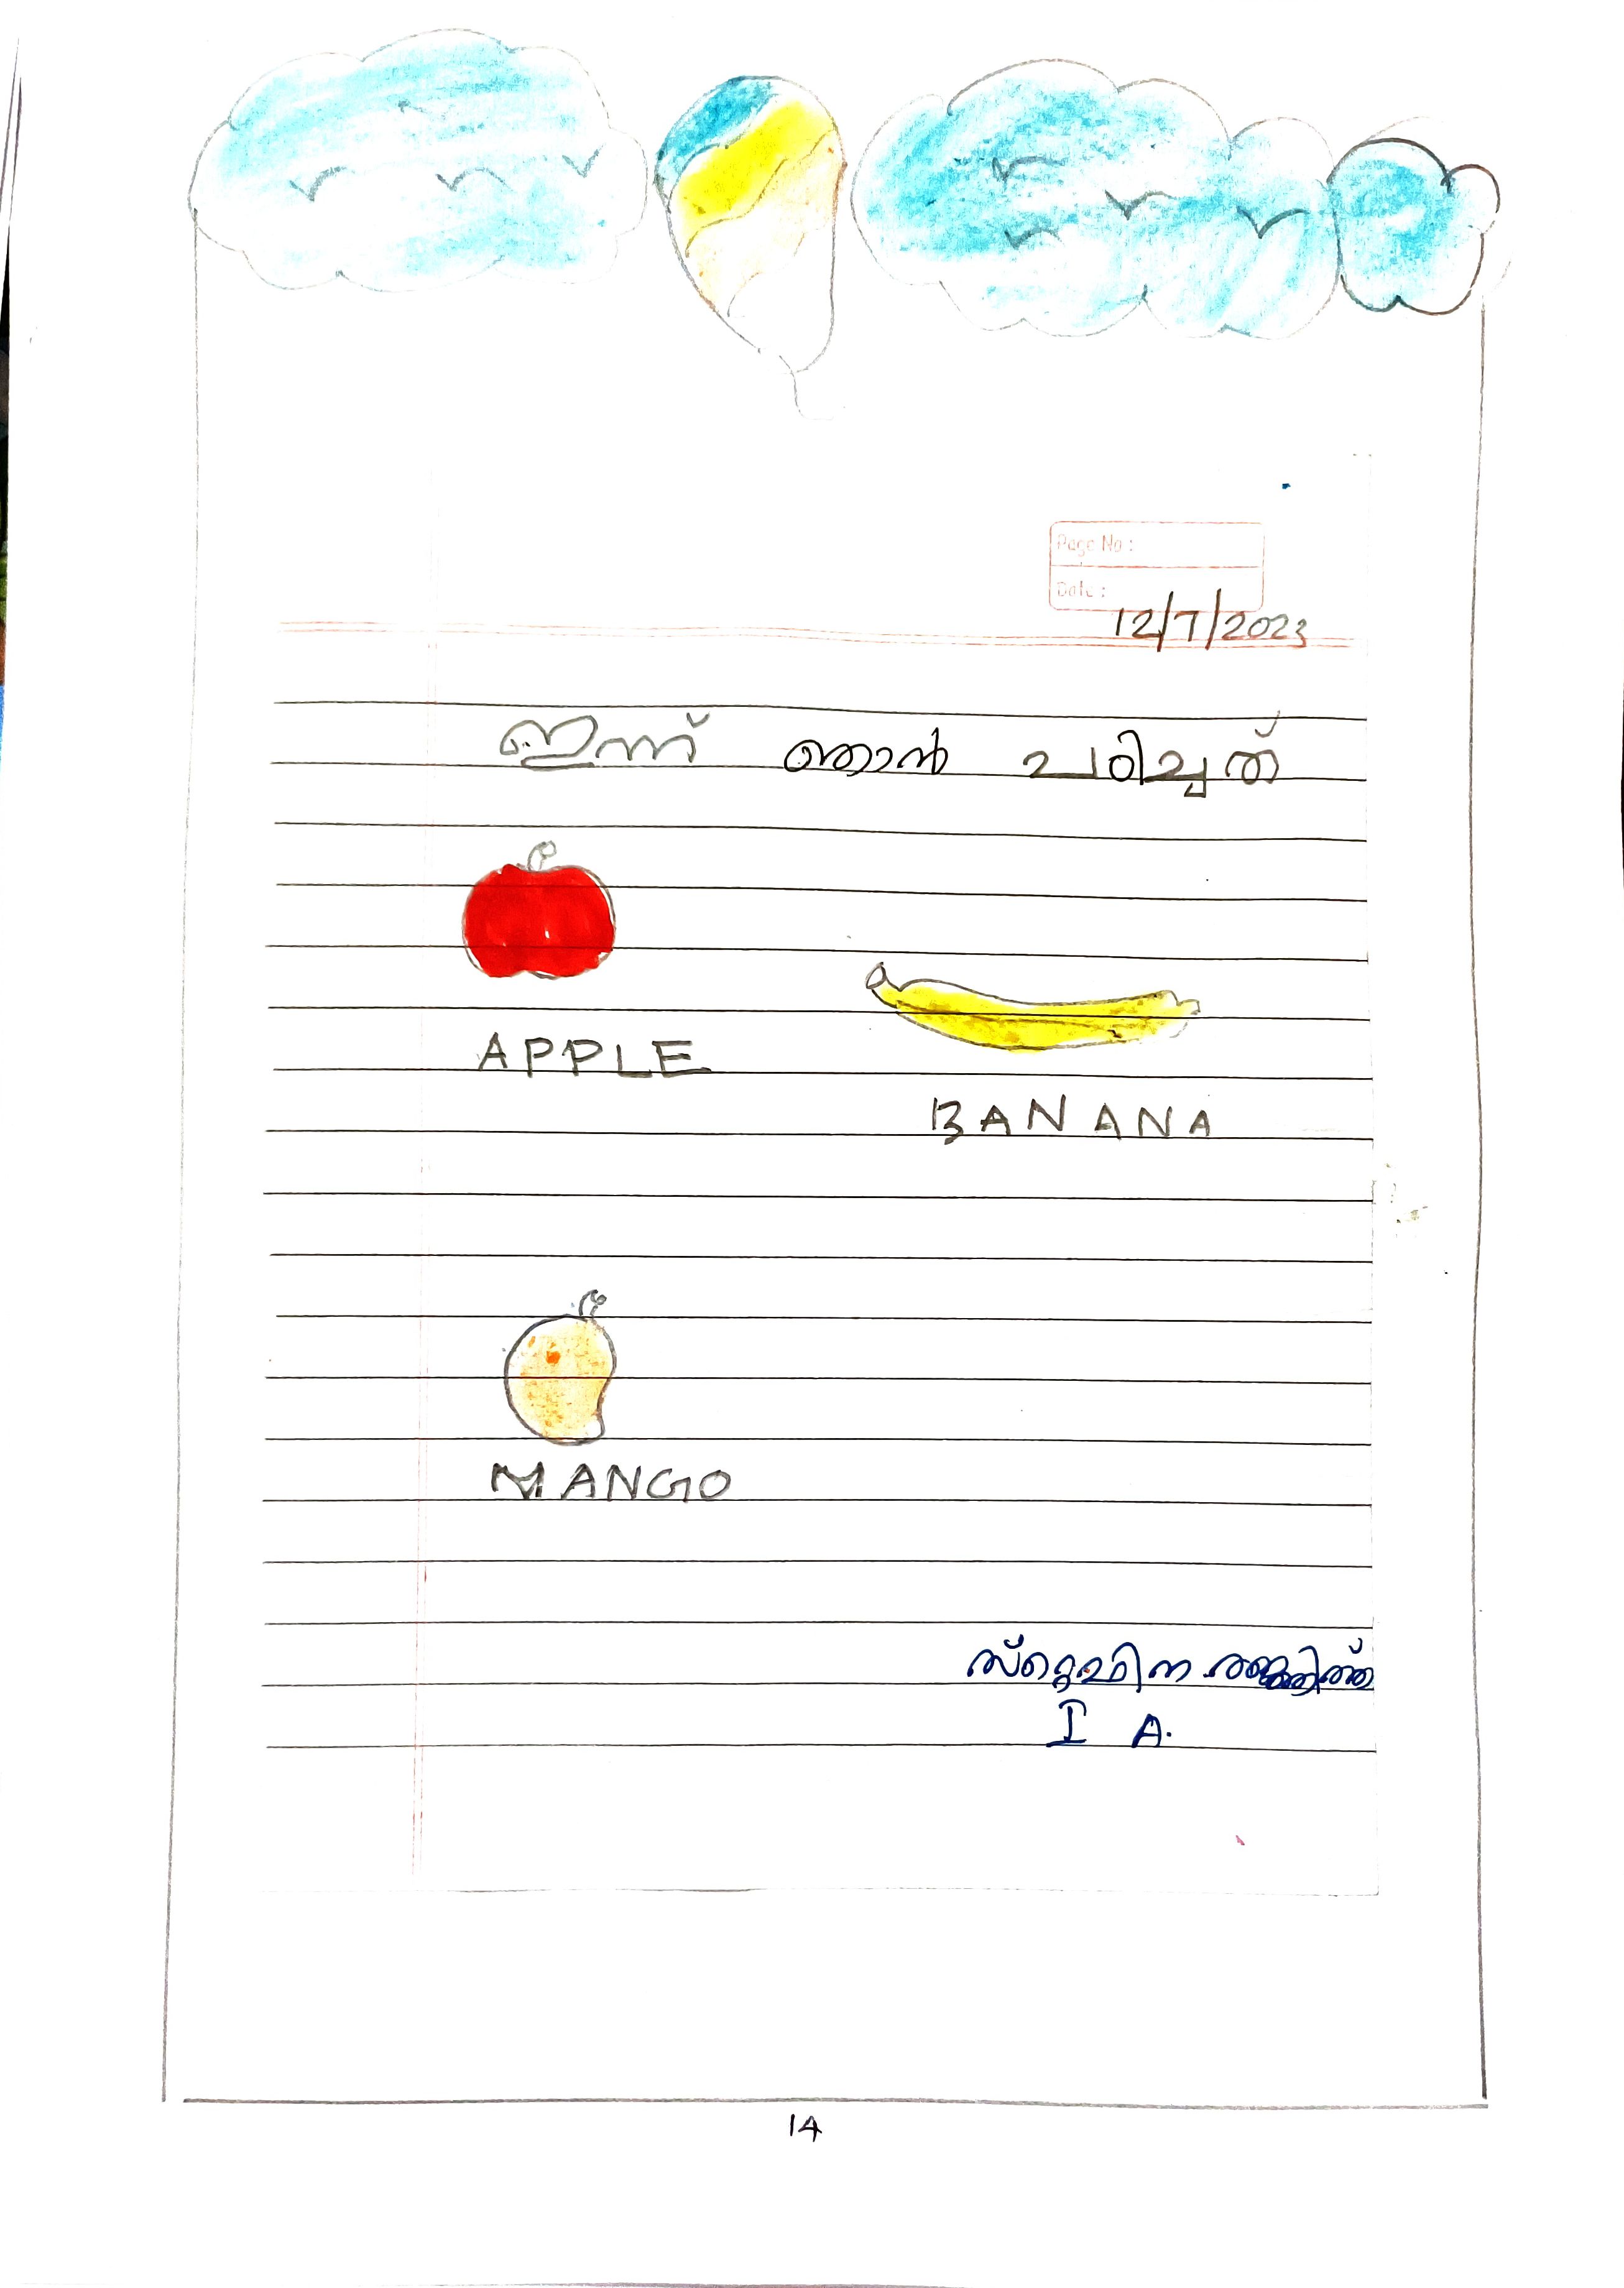 Page No :
Date :
12/7/2023
ഇന്ന് ഞാൻ പഠിച്ചത്
APPLE
BANANA
MANGO
സ്റ്റെഫിന
I A.
14